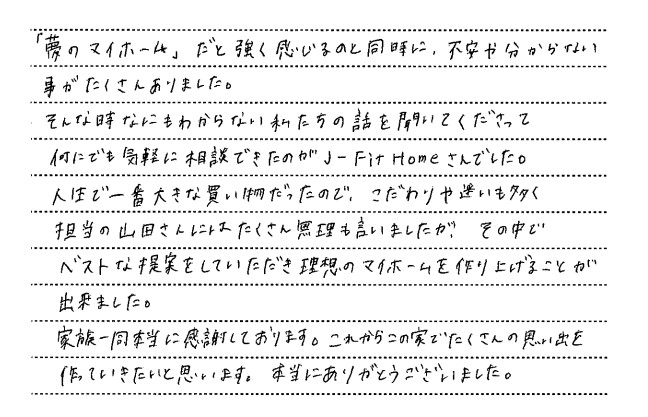 「夢のマイホーム」だと強く感じるのと同時に、不安や分からない
事がたくさんありました。
そんな時なにもわからない私たちの話を聞いてくださって
何にでも気軽に相談できたのがJ-Fit Homeさんでした。
人生で一番大きな買い物だったので、こだわりや迷いも多く
担当の山田さんにはたくさん無理も言いましたが、その中で
ベストな提案をしていただき理想のマイホームを作り上げることが
出来ました。
家族一同本当に感謝しております。これからこの家でたくさんの思い出を
作っていきたいと思います。本当にありがとうございました。